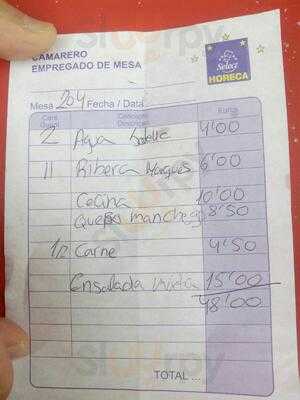 CAMARERO
EMPREGADO DE MESA
Select
HORECA
Mesa 204 Fecha / Data
Cant. Concepto Euros
Quant. Descrição
2 Agua 4'00
11 Ribera Marques 6'00
Cecina 10'00
Queso manchego 8'50
1/2 Carne 4'50
Ensalada Mixta 15'00
48'00
TOTAL ...